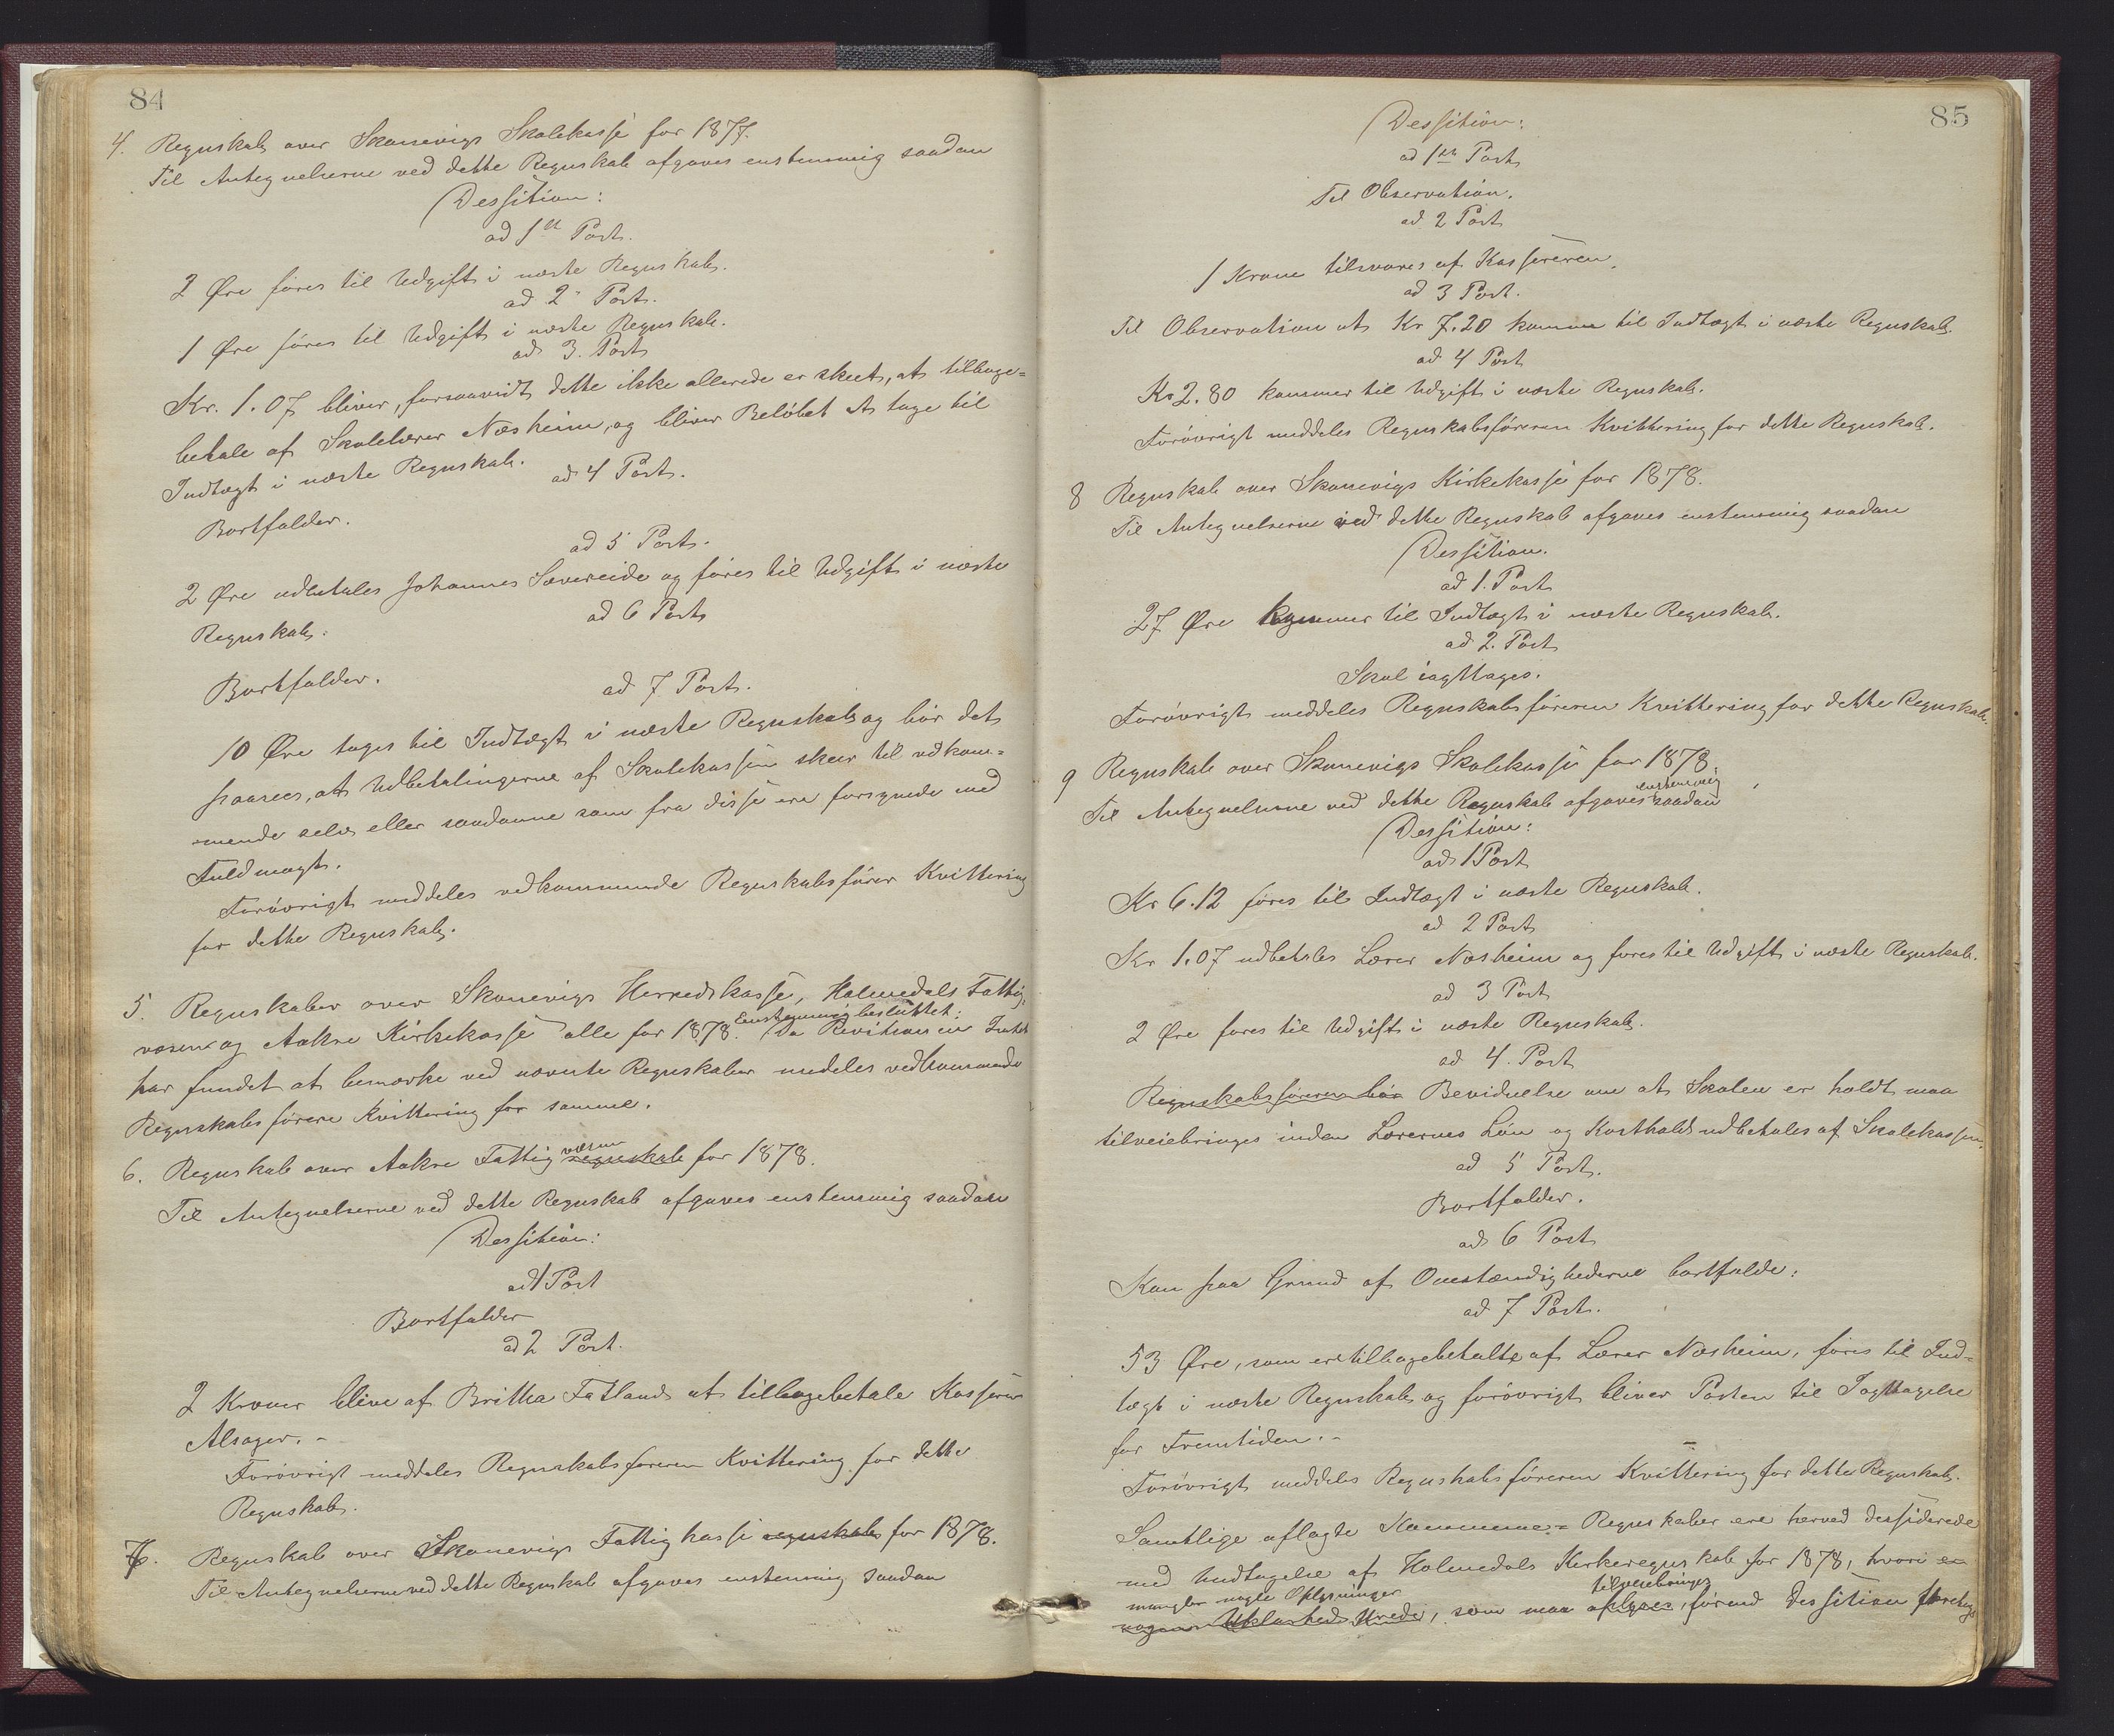 84
4. Regnskab over Skonevigs Skolekasse for 1877.
Til Antegnelserne ved dette Regnskab afgaves enstemmig saadan
Dessition:
ad 1st Post.
2 Øre føres til Udgift i næste Regnskab.
ad 2' Post.
1 Øre føres til Udgift i næste Regnskab.
ad 3. Post
Kr. 1.07 bliver, forsaavidt dette ikke allerede er skeet, at tilbage=
betale af Skolelærer Næsheim, og bliver Beløbet at tage til
Indtægt i næste Regnskab.
ad 4 Post.
Bortfalder.
ad 5 Post.
2 Øre udbetales Johannes Sævereide og føres til Udgift i næste
Regnskab.
ad 6 Post
Bortfalder.
ad 7 Post.
10 Øre tages til Indtægt i næste Regnskab og bør det
paasees, at Udbetalingerne af Skolekassen skeer til vedkom=
mende selv eller saadanne som fra disse ere forsynede med
Fuldmagt.
Forøvrigt meddeles vedkommende Regnskabsfører Kvittering
for dette Regnskab.
5. Regnskaber over Skonevigs Herredskasse, Holmedals Fattig=
væsen og Aakre Kirkekasse alle for 1878. Enstemmig besluttet: Da Revisionen Intet
har fundet at bemærke ved nævnte Regnskaber meddeles vedkommende
Regnskabsførere Kvittering for samme.
6. Regnskab over Aakre Fattigvæsen regnskab for 1878.
Til Antegnelserne ved dette Regnskab afgaves enstemmig saadan
Dessition:
ad 1 Post
Bortfalder
ad 2 Post.
2 Kroner blive af Britha Fatland at tilbagebetale Kasserer
Alsager. -
Forøvrigt meddeles Regnskabsføreren Kvittering for dette
Regnskab.
7. Regnskab over Skonevigs Fattigkasse regnskab for 1878.
Til Antegnelserne ved dette Regnskab afgaves enstemmig saadan
85
Dessition:
ad 1ste Post
Til Observation.
ad 2 Post
1 Krone tilsvares af Kassereren.
ad 3 Post.
Til Observation at Kr 7.20 komme til Indtægt i næste Regnskab.
ad 4 Post
Kr 2.80 kommer til Udgift i næste Regnskab.
Forøvrigt meddeles Regnskabsføreren Kvittering for dette Regnskab.
8 Regnskab over Skonevigs Kirkekasse for 1878.
Til Antegnelserne ved dette Regnskab afgaves enstemmig saadan
Dessition.
ad 1. Post
27 Øre kommer til Indtægt i næste Regnskab.
ad 2. Post
Skal iagttages.
Forøvrigt meddeles Regnskabsføreren Kvittering for dette Regnskab.
9 Regnskab over Skonevigs Skolekasse for 1878.
Til Antegnelserne ved dette Regnskab afgaves enstemmig saadan
Dessition:
ad 1 Post
Kr 6.12 føres til Indtægt i næste Regnskab.
ad 2 Post
Kr 1.07 udbetales Lærer Næsheim og føres til Udgift i næste Regnskab.
ad 3 Post
2 Øre føres til Udgift i næste Regnskab.
ad 4. Post
Regnskabsføreren bør Bevidnelse om at Skolen er holdt maa
tilveiebringes inden Lærernes Løn og Kosthold udbetales af Skolekassen.
ad 5 Post.
Bortfalder.
ad 6 Post
Kan paa Grund af Omstændighederne bortfalde.
ad 7 Post.
53 Øre, som er tilbagebetalt af Lærer Næsheim, føres til Ind=
tægt i næste Regnskab og forøvrigt bliver Posten til Iagttagelse
for Fremtiden. -
Forøvrigt meddeles Regnskabsføreren Kvittering for dette Regnskab.
Samtlige aflagte Kommune= Regnskaber ere herved dessiderede
med Undtagelse af Holmedals Kirkeregnskab for 1878, hvori er
mangler nogle Oplysninger tilveiebringes
nogen Uklarhed tilstede, som maa oplyses, førend Dessition foretages